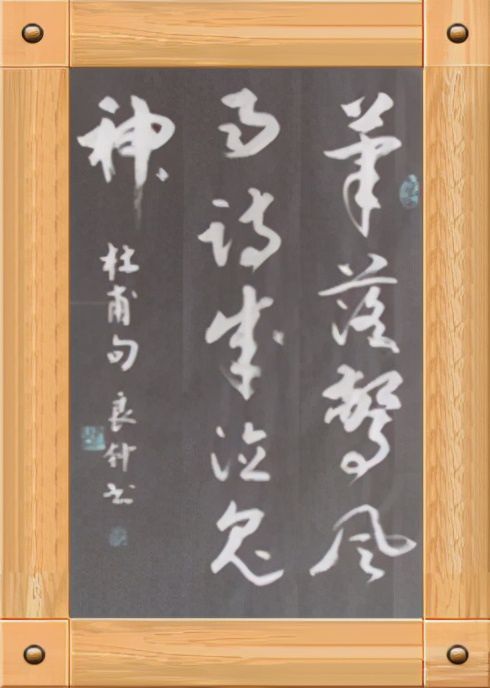 筆落驚風
雨詩成泣鬼
神
杜甫句 良 书